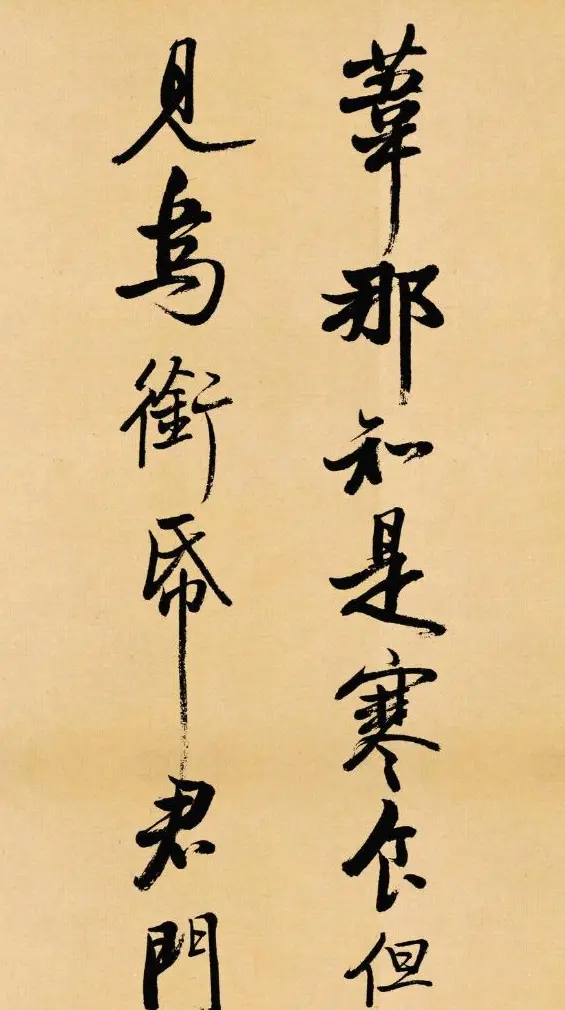 葦那知是寒食但
見烏銜帋君門